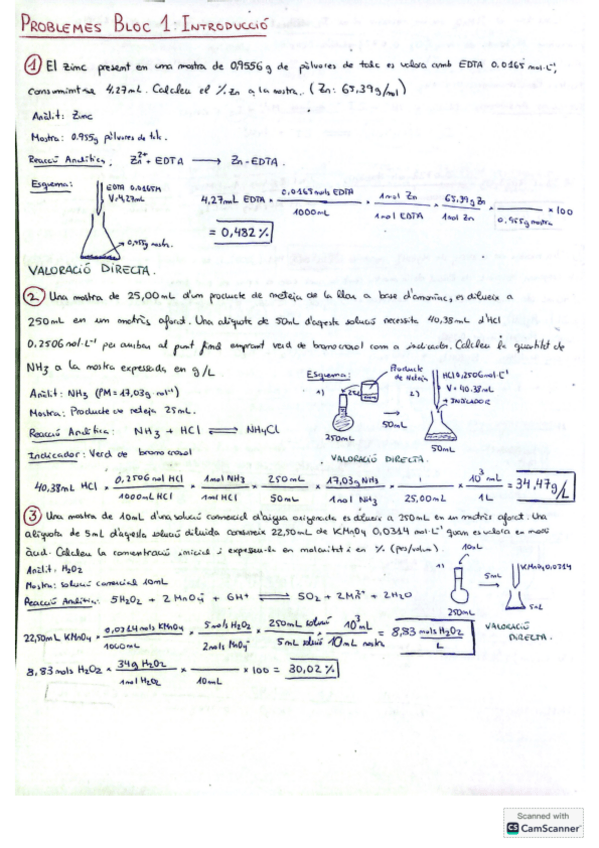 PROBLEMES BLOC 1: INTRODUCCIÓ
① El zinc present en una mostra de 0,9556 g de pólvores de talc es valora amb EDTA 0.0165 mol·L⁻¹,
consumint-se 4,27mL. Calculeu el % Zn a la mostra. (Zn: 65,39g/mol)
Anàlit: Zinc
Mostra: 0.955g pólvores de talc.
Reacció Analítica: Zn²⁺ + EDTA → Zn-EDTA.
Esquema:
EDTA 0.0165M
V=4,27mL
0,955g mostra.
4,27mL EDTA × 0,0165mols EDTA / 1000mL × 1mol Zn / 1mol EDTA × 65,39g Zn / 1mol Zn × / 0,955g mostra × 100
= 0,482 %
VALORACIÓ DIRECTA.
② Una mostra de 25,00mL d'un producte de neteja de la llar a base d'amoníac, es dilueix a
250mL en un matràs aforat. Una alíquota de 50mL d'aquesta solució necessita 40,38mL d'HCl
0.2506mol·L⁻¹ per arribar al punt final emprant verd de bromocresol com a indicador. Calculeu la quantitat de
NH₃ a la mostra expresada en g/L
Esquema:
Producte de Neteja
HCl 0,2506mol·L⁻¹
V=40.38mL
+ INDICADOR
1)
25mL
2)
250mL
50mL
50mL
Anàlit: NH₃ (PM=17,03g mol⁻¹)
Mostra: Producte de neteja 25mL.
Reacció Analítica: NH₃ + HCl ⇌ NH₄Cl
Indicador: Verd de bromocresol
VALORACIÓ DIRECTA.
40,38mL HCl × 0,2506 mol HCl / 1000mL HCl × 1mol NH₃ / 1mol HCl × 250mL / 50mL × 17,03g NH₃ / 1mol NH₃ × 1 / 25,00mL × 10³mL / 1L = 34,47g/L
③ Una mostra de 10mL d'una solució comercial d'aigua oxigenada es dilueix a 250mL en un matràs aforat. Una
alíquota de 5mL d'aquesta solució diluida consumeix 22,50mL de KMnO₄ 0,0314 mol·L⁻¹ quan es valora en medi
àcid. Calculeu la concentració inicial i expresseu-la en molaritat i en % (pes/volum).
Anàlit: H₂O₂
Mostra: solució comercial 10mL
Reacció Analítica: 5H₂O₂ + 2MnO₄⁻ + 6H⁺ ⇌ 5O₂ + 2Mn²⁺ + 2H₂O
1)
10mL
250mL
5mL
KMnO₄ 0,0314
5mL
VALORACIÓ DIRECTA.
22,50mL KMnO₄ × 0,0314mols KMnO₄ / 1000mL × 5mols H₂O₂ / 2mols MnO₄⁻ × 250mL solució / 5mL solució × 10³mL / 10mL mostra = 8,83 mols H₂O₂ / L
8,83 mols H₂O₂ × 34g H₂O₂ / 1mol H₂O₂ × / 10mL × 100 = 30,02 %
Scanned with
CS CamScanner